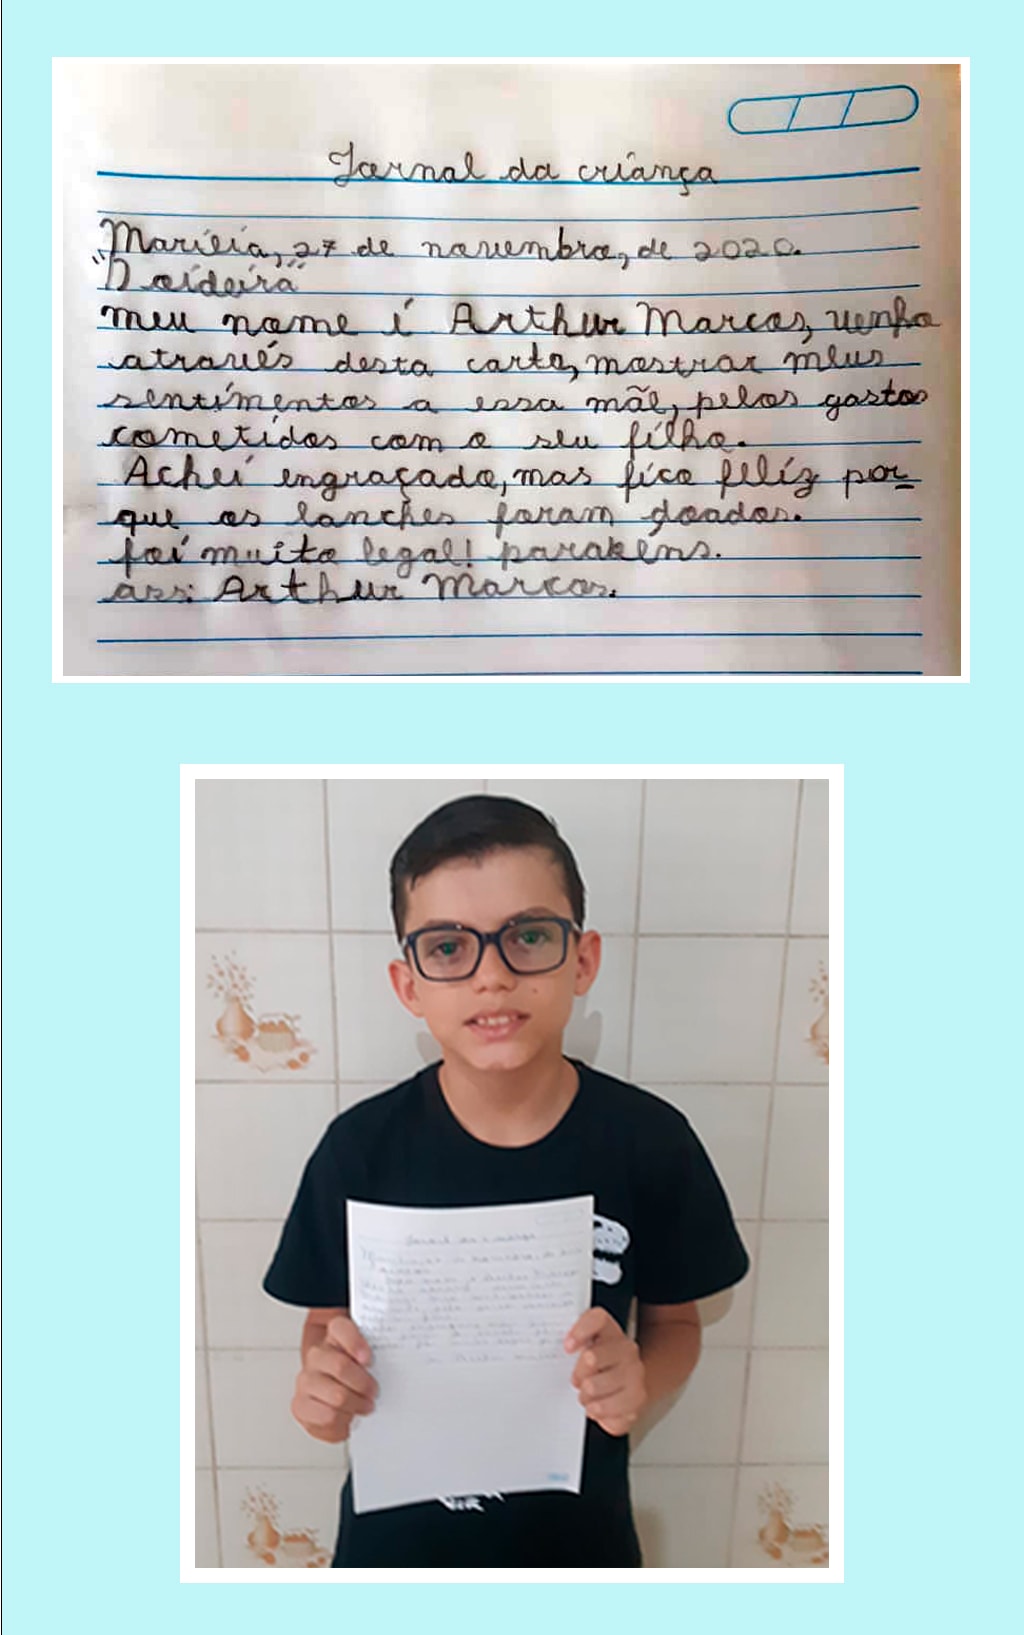 Jornal da criança
Marília, 27 de novembro, de 2020.
"Doideira"
Meu nome é Arthur Marcos, venho
através desta carta, mostrar meus
sentimentos a essa mãe, pelos gastos
cometidos com o seu filho.
Achei engraçado, mas fico feliz por
que os lanches foram doados.
foi muito legal! parabéns.
ass: Arthur Marcos.